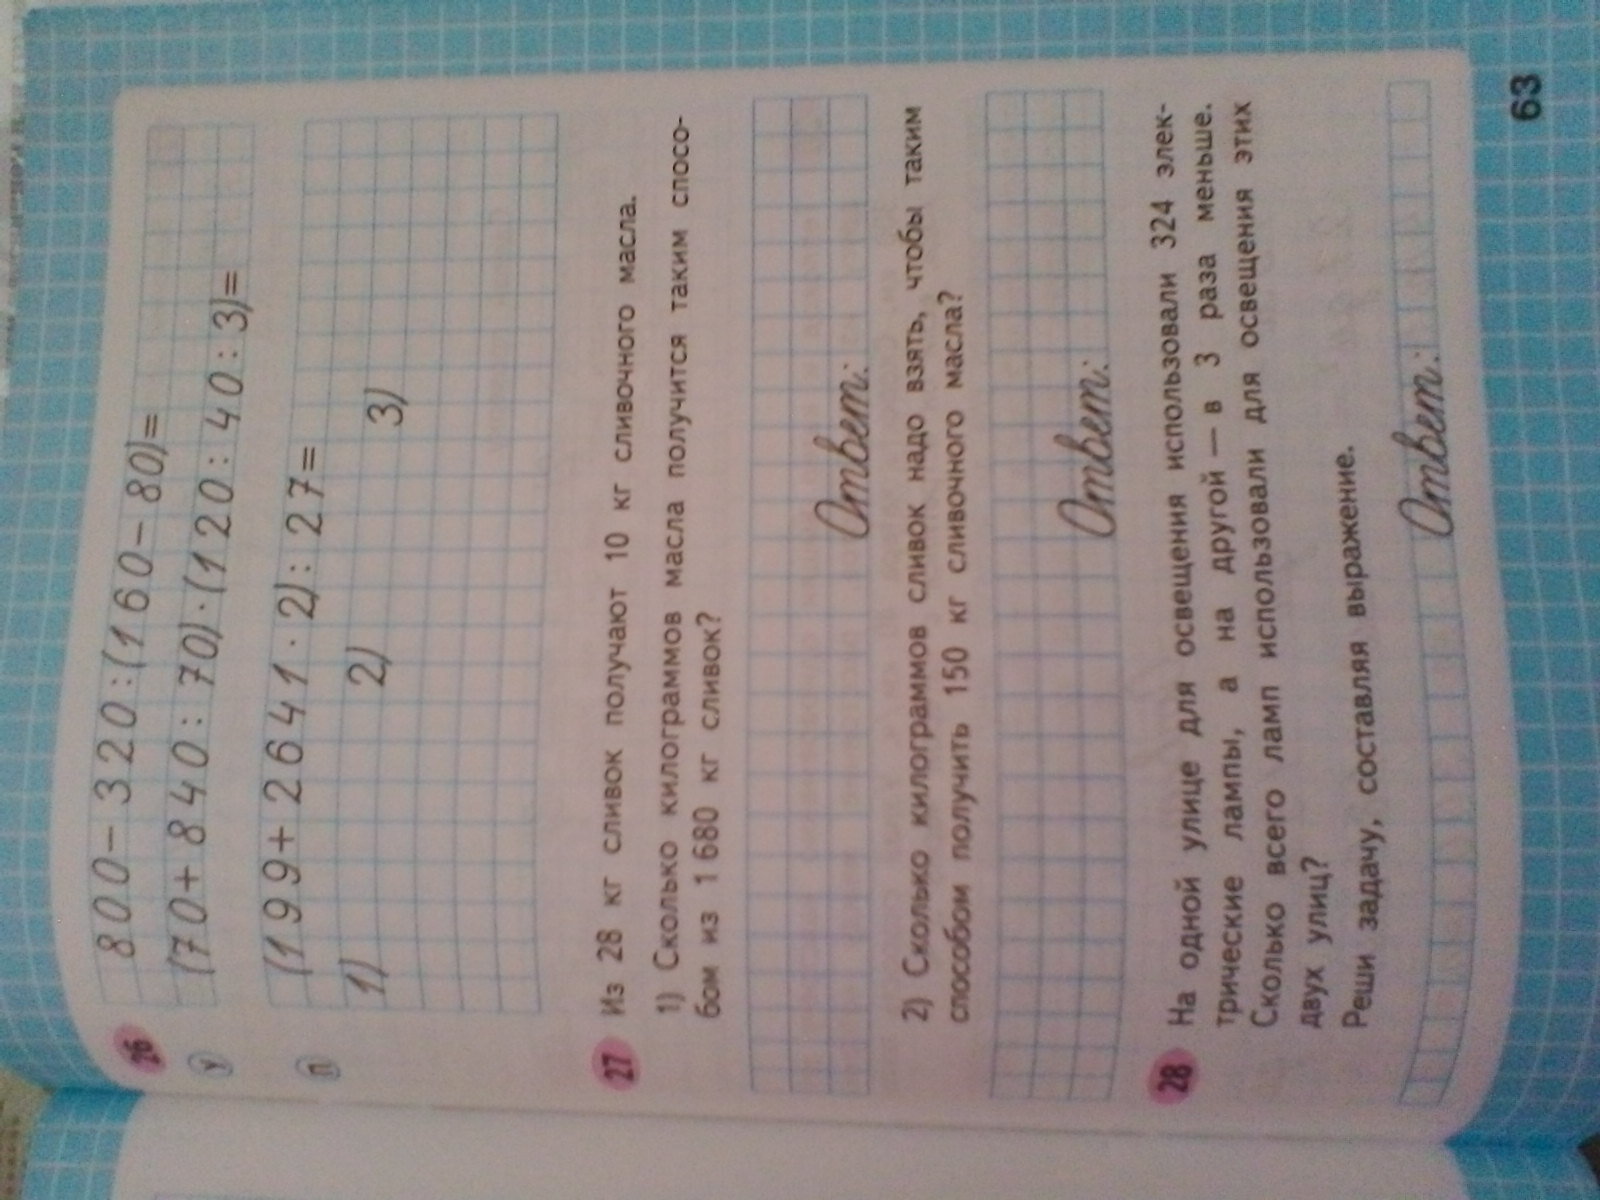 26
800-320:(160-80)=
У
(70+840:70)·(120:40:3)=
П
(199+2641·2):27=
1) 2) 3)
27 Из 28 кг сливок получают 10 кг сливочного масла.
1) Сколько килограммов масла получится таким спосо-
бом из 1 680 кг сливок?
Ответ:
2) Сколько килограммов сливок надо взять, чтобы таким
способом получить 150 кг сливочного масла?
Ответ:
28 На одной улице для освещения использовали 324 элек-
трические лампы, а на другой — в 3 раза меньше.
Сколько всего ламп использовали для освещения этих
двух улиц?
Реши задачу, составляя выражение.
Ответ:
63